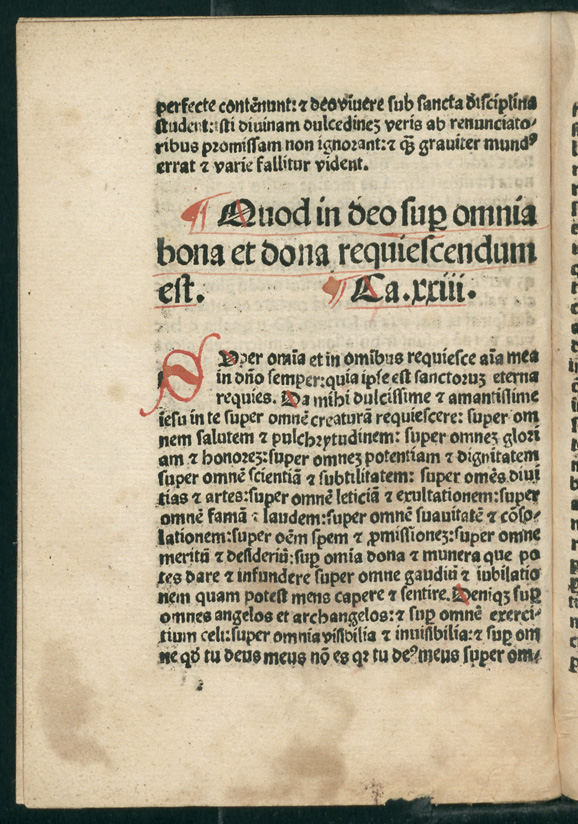 perfecte contēnunt: ⁊ deo viuere sub sancta disciplina
student: isti diuinam dulcedineꝫ veris ab renunciato-
ribus promissam non ignorant: ⁊ q̄ꝫ grauiter mundꝰ
errat ⁊ varie fallitur vident.
¶ Quod in deo suꝑ omnia
bona et dona requiescendum
est. ¶ Ca.xxiii.
SVper om̄ia et in omībus requiesce aīa mea
in dn̄o semper: quia ipse est sanctoruꝫ eterna
requies. Da mihi dulcissime ⁊ amantissime
iesu in te super omnē creaturā requiescere: super om
nem salutem ⁊ pulchrytudinem: super omneꝫ glori
am ⁊ honoreꝫ: super omneꝫ potentiam ⁊ dignitatem
super omnē scientiā ⁊ subtilitatem: super omēs diui
tias ⁊ artes: super omnē leticiā ⁊ exultationem: super
omnē famā ⁊ laudem: super omnē suauitatē ⁊ cōso-
lationem: super oēm spem ⁊ ꝓmissioneꝫ: super omne
meritū ⁊ desideriū: suꝑ omīa dona ⁊ munera que po
tes dare ⁊ infundere super omne gaudiū ⁊ iubilatio
nem quam potest mens capere ⁊ sentire. Deniqꝫ suꝑ
omnes angelos et archangelos: ⁊ suꝑ omnē exerci-
tium celi: super omnia visibilia ⁊ inuisibilia: ⁊ suꝑ om
ne qd̄ tu deus meus nō es qꝛ tu deꝰ meus super om-